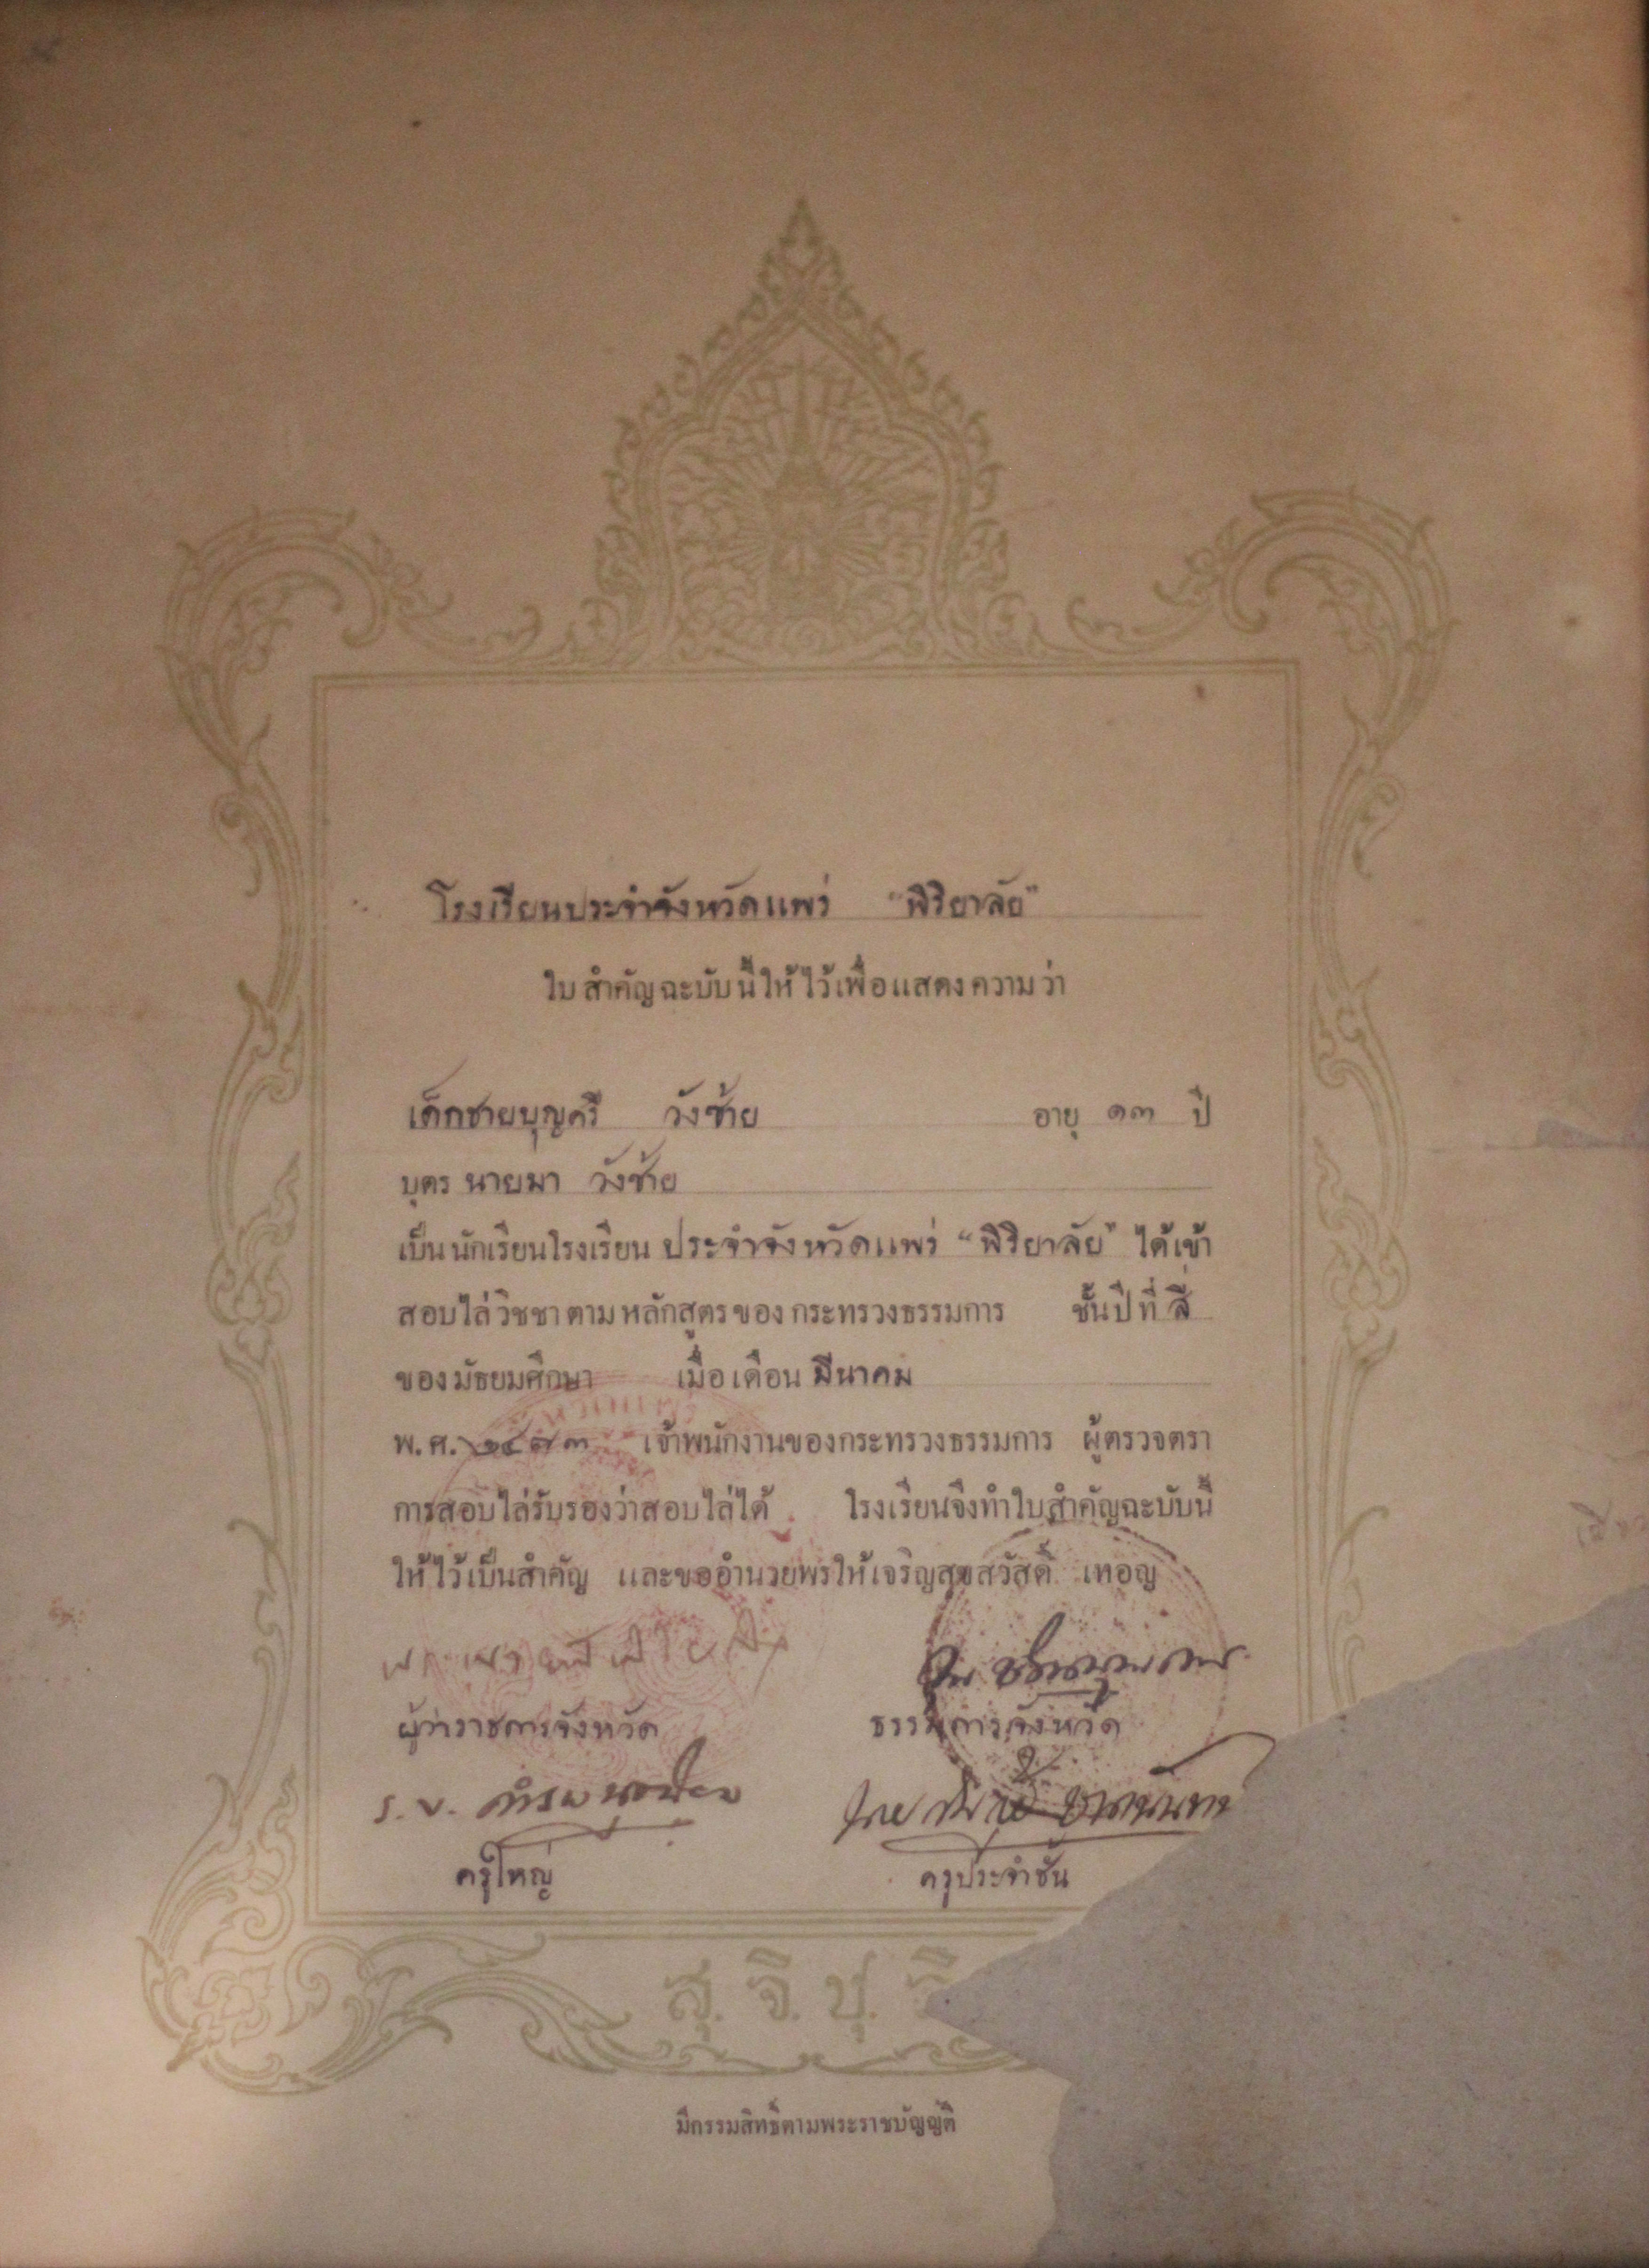 โรงเรียนประจำจังหวัดแพร่ "พิริยาลัย"
ใบสำคัญฉะบับนี้ให้ไว้เพื่อแสดงความว่า
เด็กชายบุญศรี วังซ้าย อายุ ๑๓ ปี
บุตร นายมา วังซ้าย
เป็นนักเรียนโรงเรียน ประจำจังหวัดแพร่ "พิริยาลัย" ได้เข้า
สอบไล่วิชชาตามหลักสูตรของกระทรวงธรรมการ ชั้นปีที่ สี่
ของมัธยมศึกษา เมื่อเดือน มีนาคม
พ.ศ. ๒๔๗๓ เจ้าพนักงานของกระทรวงธรรมการ ผู้ตรวจตรา
การสอบไล่รับรองว่าสอบไล่ได้ โรงเรียนจึงทำใบสำคัญฉะบับนี้
ให้ไว้เป็นสำคัญ และขออำนวยพรให้เจริญสุขสวัสดิ์ เทอญ
ผู้ว่าราชการจังหวัด ธรรมการจังหวัด
ร.บ.
ครูใหญ่ ครูประจำชั้น
สุ. จิ. ปุ.
มีกรรมสิทธิ์ตามพระราชบัญญัติ